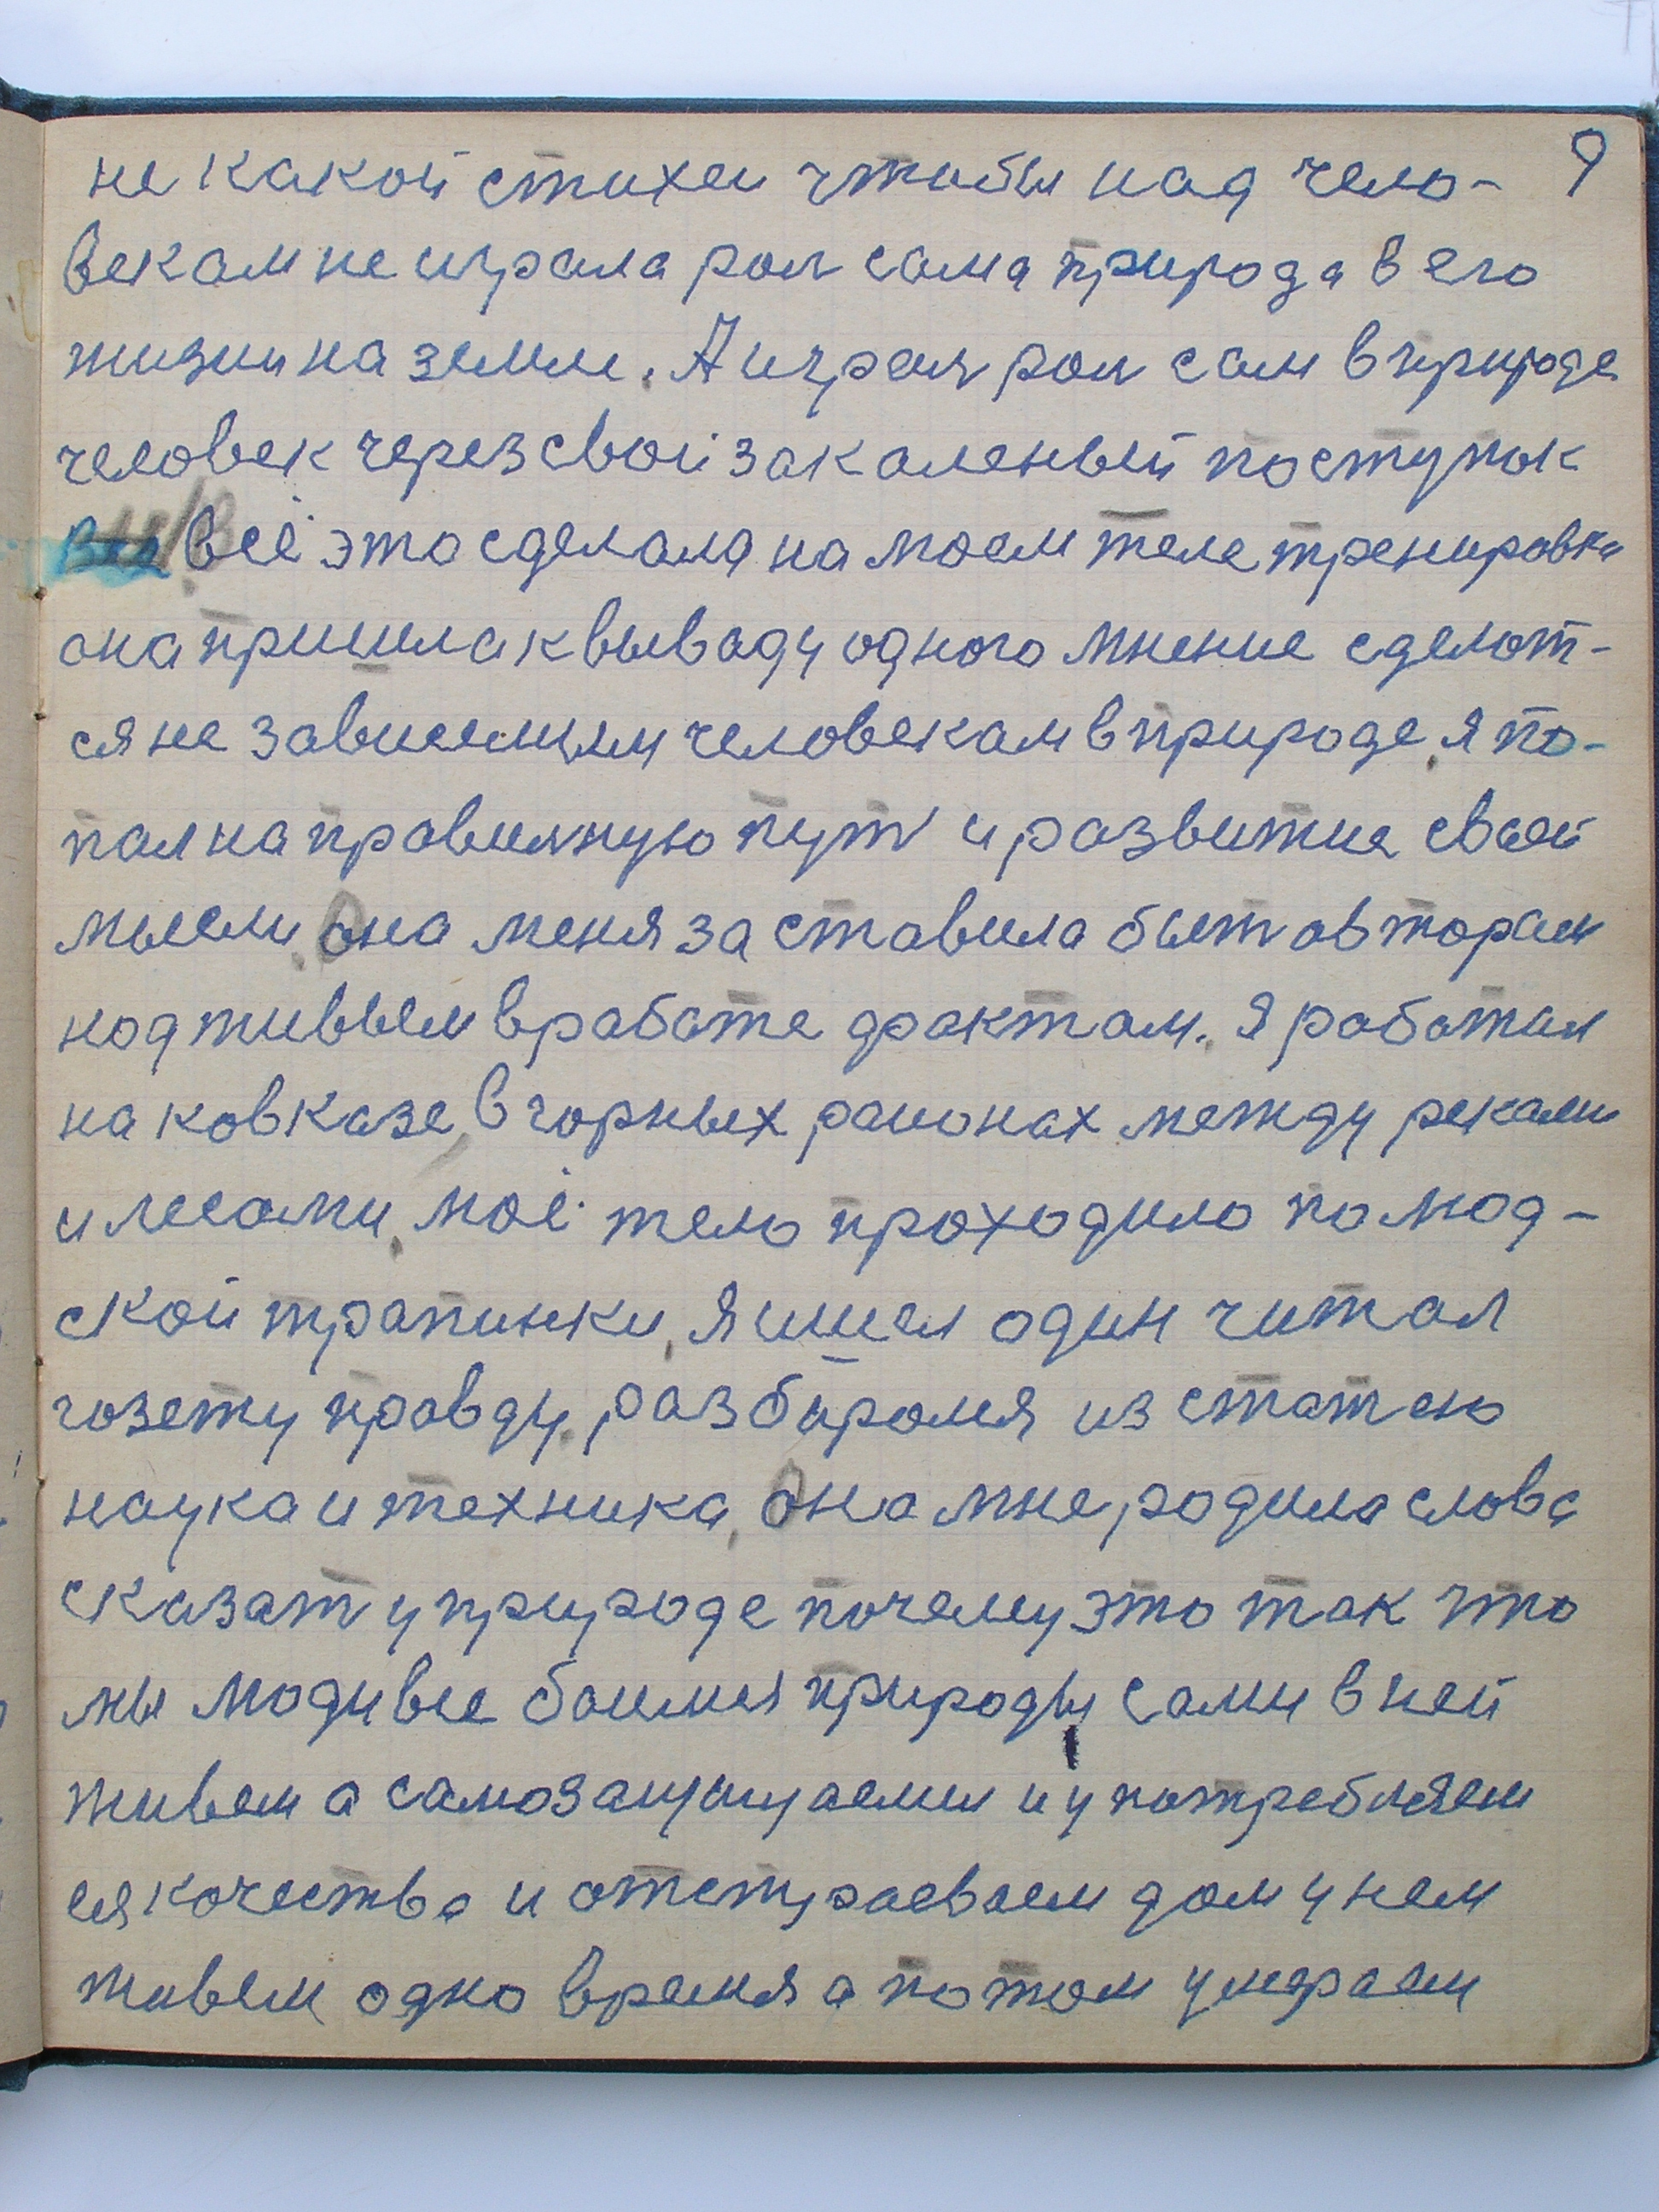 не какой стихеи чтобы над чело- 9
векам не играла рол сама природа в его
жизни на земли. А играл рол сам в природе
человек через свой закаленый поступок
всё это сделала на моем теле тренировка
она пришла к вываду одного мнение сделат-
ся не зависемым человекам в природе, я по-
пал на правилную пут и развитие своей
мысли, Она меня заставила быт автарам
над живым в работе фактам. Я работал
на ковказе, в горных раионах между реками
и лесами, моё тело проходило по люд-
ской трапинки, я шшел один читал
гозету правду, разбирался из статею
наука и техника, Она мне родила слова
сказат у природе почему это так что
мы люди все боимся природы сами в ней
живем а самозащищаемся и употребляем
ея качества и отстраеваем дом у нем
живем одно время а потом умираем